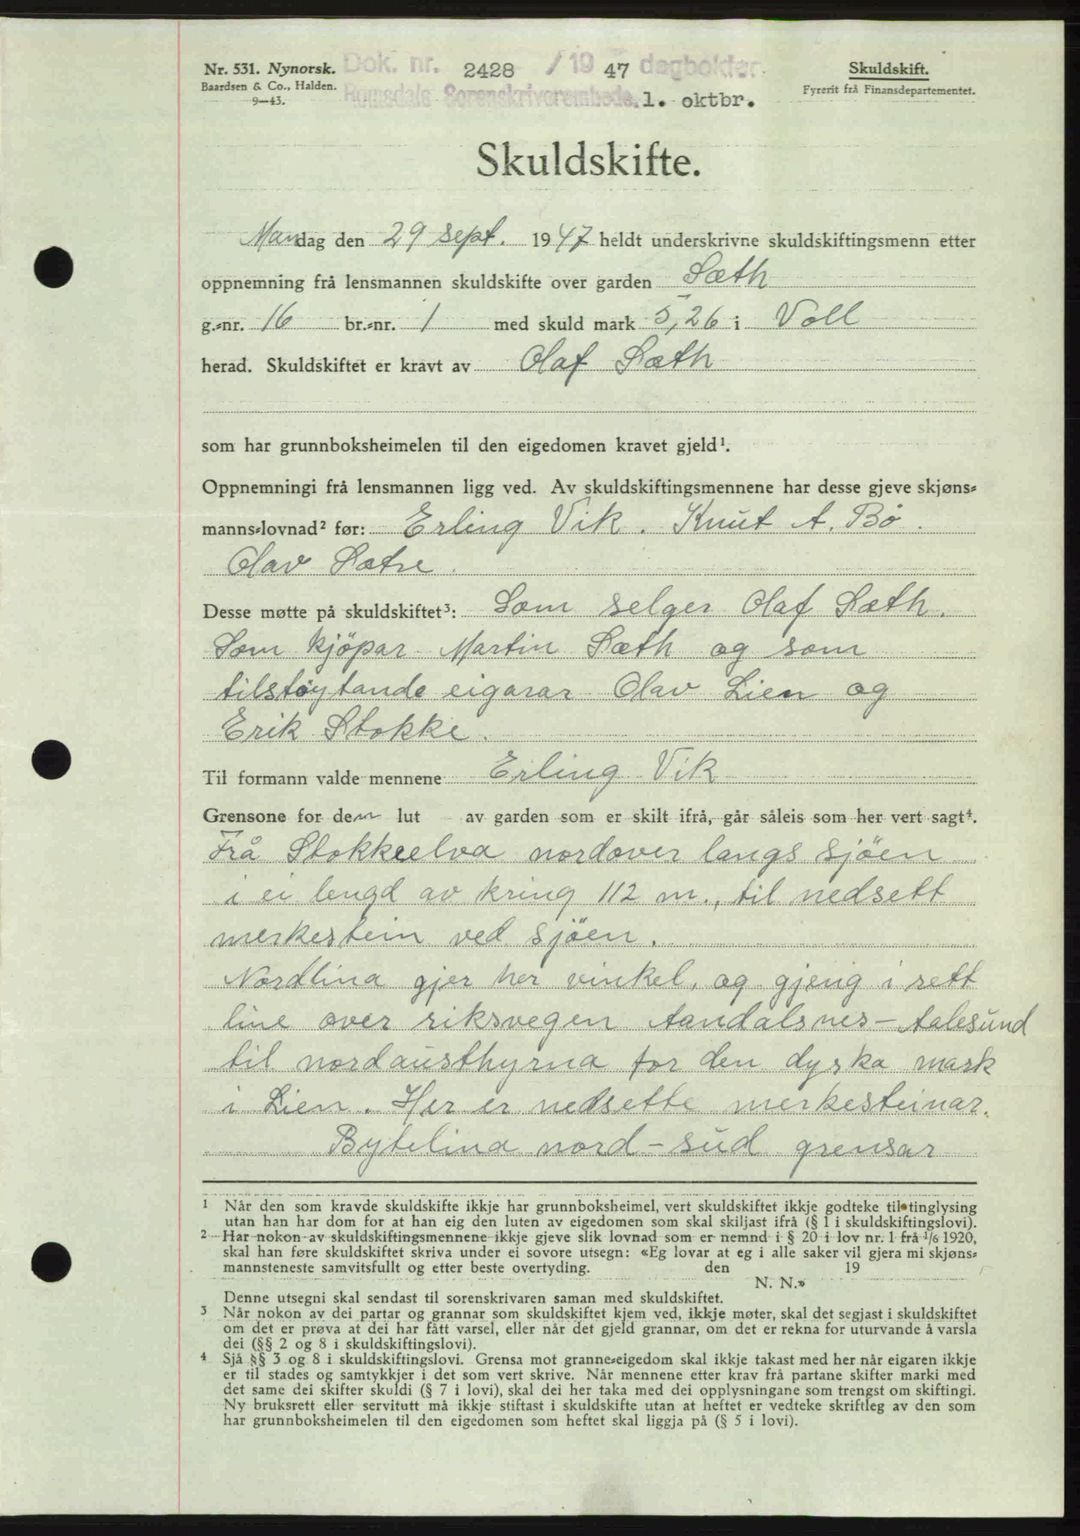 Nr. 531. Nynorsk.
Baardsen & Co., Halden.
9—43.
Dok. nr. 2428 / 19 47 dagbokder
Romsdals Sorenskriverembede. 1. oktbr.
Skuldskift.
Fyrerit frå Finansdepartementet.
Skuldskifte.
Mandag den 29 sept. 1947 heldt underskrivne skuldskiftingsmenn etter
oppnemning frå lensmannen skuldskifte over garden Sæth
g.-nr. 16 br.-nr. 1 med skuld mark 5,26 i Voll
herad. Skuldskiftet er kravt av Olaf Sæth
som har grunnboksheimelen til den eigedomen kravet gjeld¹.
Oppnemningi frå lensmannen ligg ved. Av skuldskiftingsmennene har desse gjeve skjøns-
manns-lovnad² før: Erling Vik. Knut A. Bø.
Olav Sætre.
Desse møtte på skuldskiftet³: Som selger Olaf Sæth.
Som kjöpar Martin Sæth og som
tilstøytande eigarar Olav Lien og
Erik Stokke.
Til formann valde mennene Erling Vik
Grensone for den lut av garden som er skilt ifrå, går såleis som her vert sagt⁴.
Frå Stokkeelva nordover langs sjöen
i ei lengd av kring 112 m., til nedsett
merkestein ved sjöen.
Nordlina gjer her vinkel, og gjeng i rett
line over riksvegen Aandalsnes – Aalesund
til nordausthyrna for den dyrka mark
i Lien. Her er nedsette merkesteinar.
Bytelina nord – sud grensar
1 Når den som kravde skuldskifte ikkje har grunnboksheimel, vert skuldskiftet ikkje godteke til tinglysing
utan han har dom for at han eig den luten av eigedomen som skal skiljast ifrå (§ 1 i skuldskiftingslovi).
2 Har nokon av skuldskiftingsmennene ikkje gjeve slik lovnad som er nemnd i § 20 i lov nr. 1 frå 1/6 1920,
skal han føre skuldskiftet skriva under ei sovore utsegn: «Eg lovar at eg i alle saker vil gjera mi skjøns-
mannsteneste samvitsfullt og etter beste overtyding. den 19
N. N.»
Denne utsegni skal sendast til sorenskrivaren saman med skuldskiftet.
3 Når nokon av dei partar og grannar som skuldskiftet kjem ved, ikkje møter, skal det segjast i skuldskiftet
om det er prøva at dei har fått varsel, eller når det gjeld grannar, om det er rekna for uturvande å varsla
dei (§§ 2 og 8 i skuldskiftingslovi).
4 Sjå §§ 3 og 8 i skuldskiftingslovi. Grensa mot granne-eigedom skal ikkje takast med her når eigaren ikkje
er til stades og samtykkjer i det som vert skrive. Når mennene etter krav frå partane skifter marki med
det same dei skifter skuldi (§ 7 i lovi), skal dei her taka med dei opplysningane som trengst om skiftingi.
Ny bruksrett eller servitutt må ikkje stiftast i skuldskifte utan at heftet er vedteke skriftleg av den som
har grunnboksheimelen til den eigedomen som heftet skal liggja på (§ 5 i lovi).